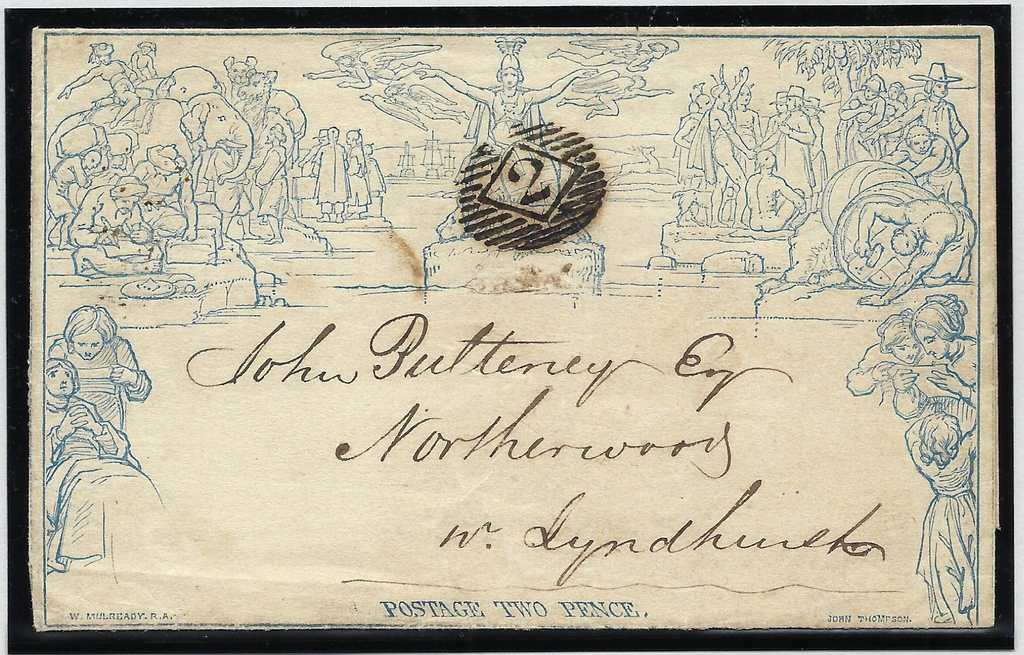 2
John Pulteney Esq
Northerwood
nr. Lyndhurst
POSTAGE TWO PENCE.
W. MULREADY. R.A.
JOHN THOMPSON.